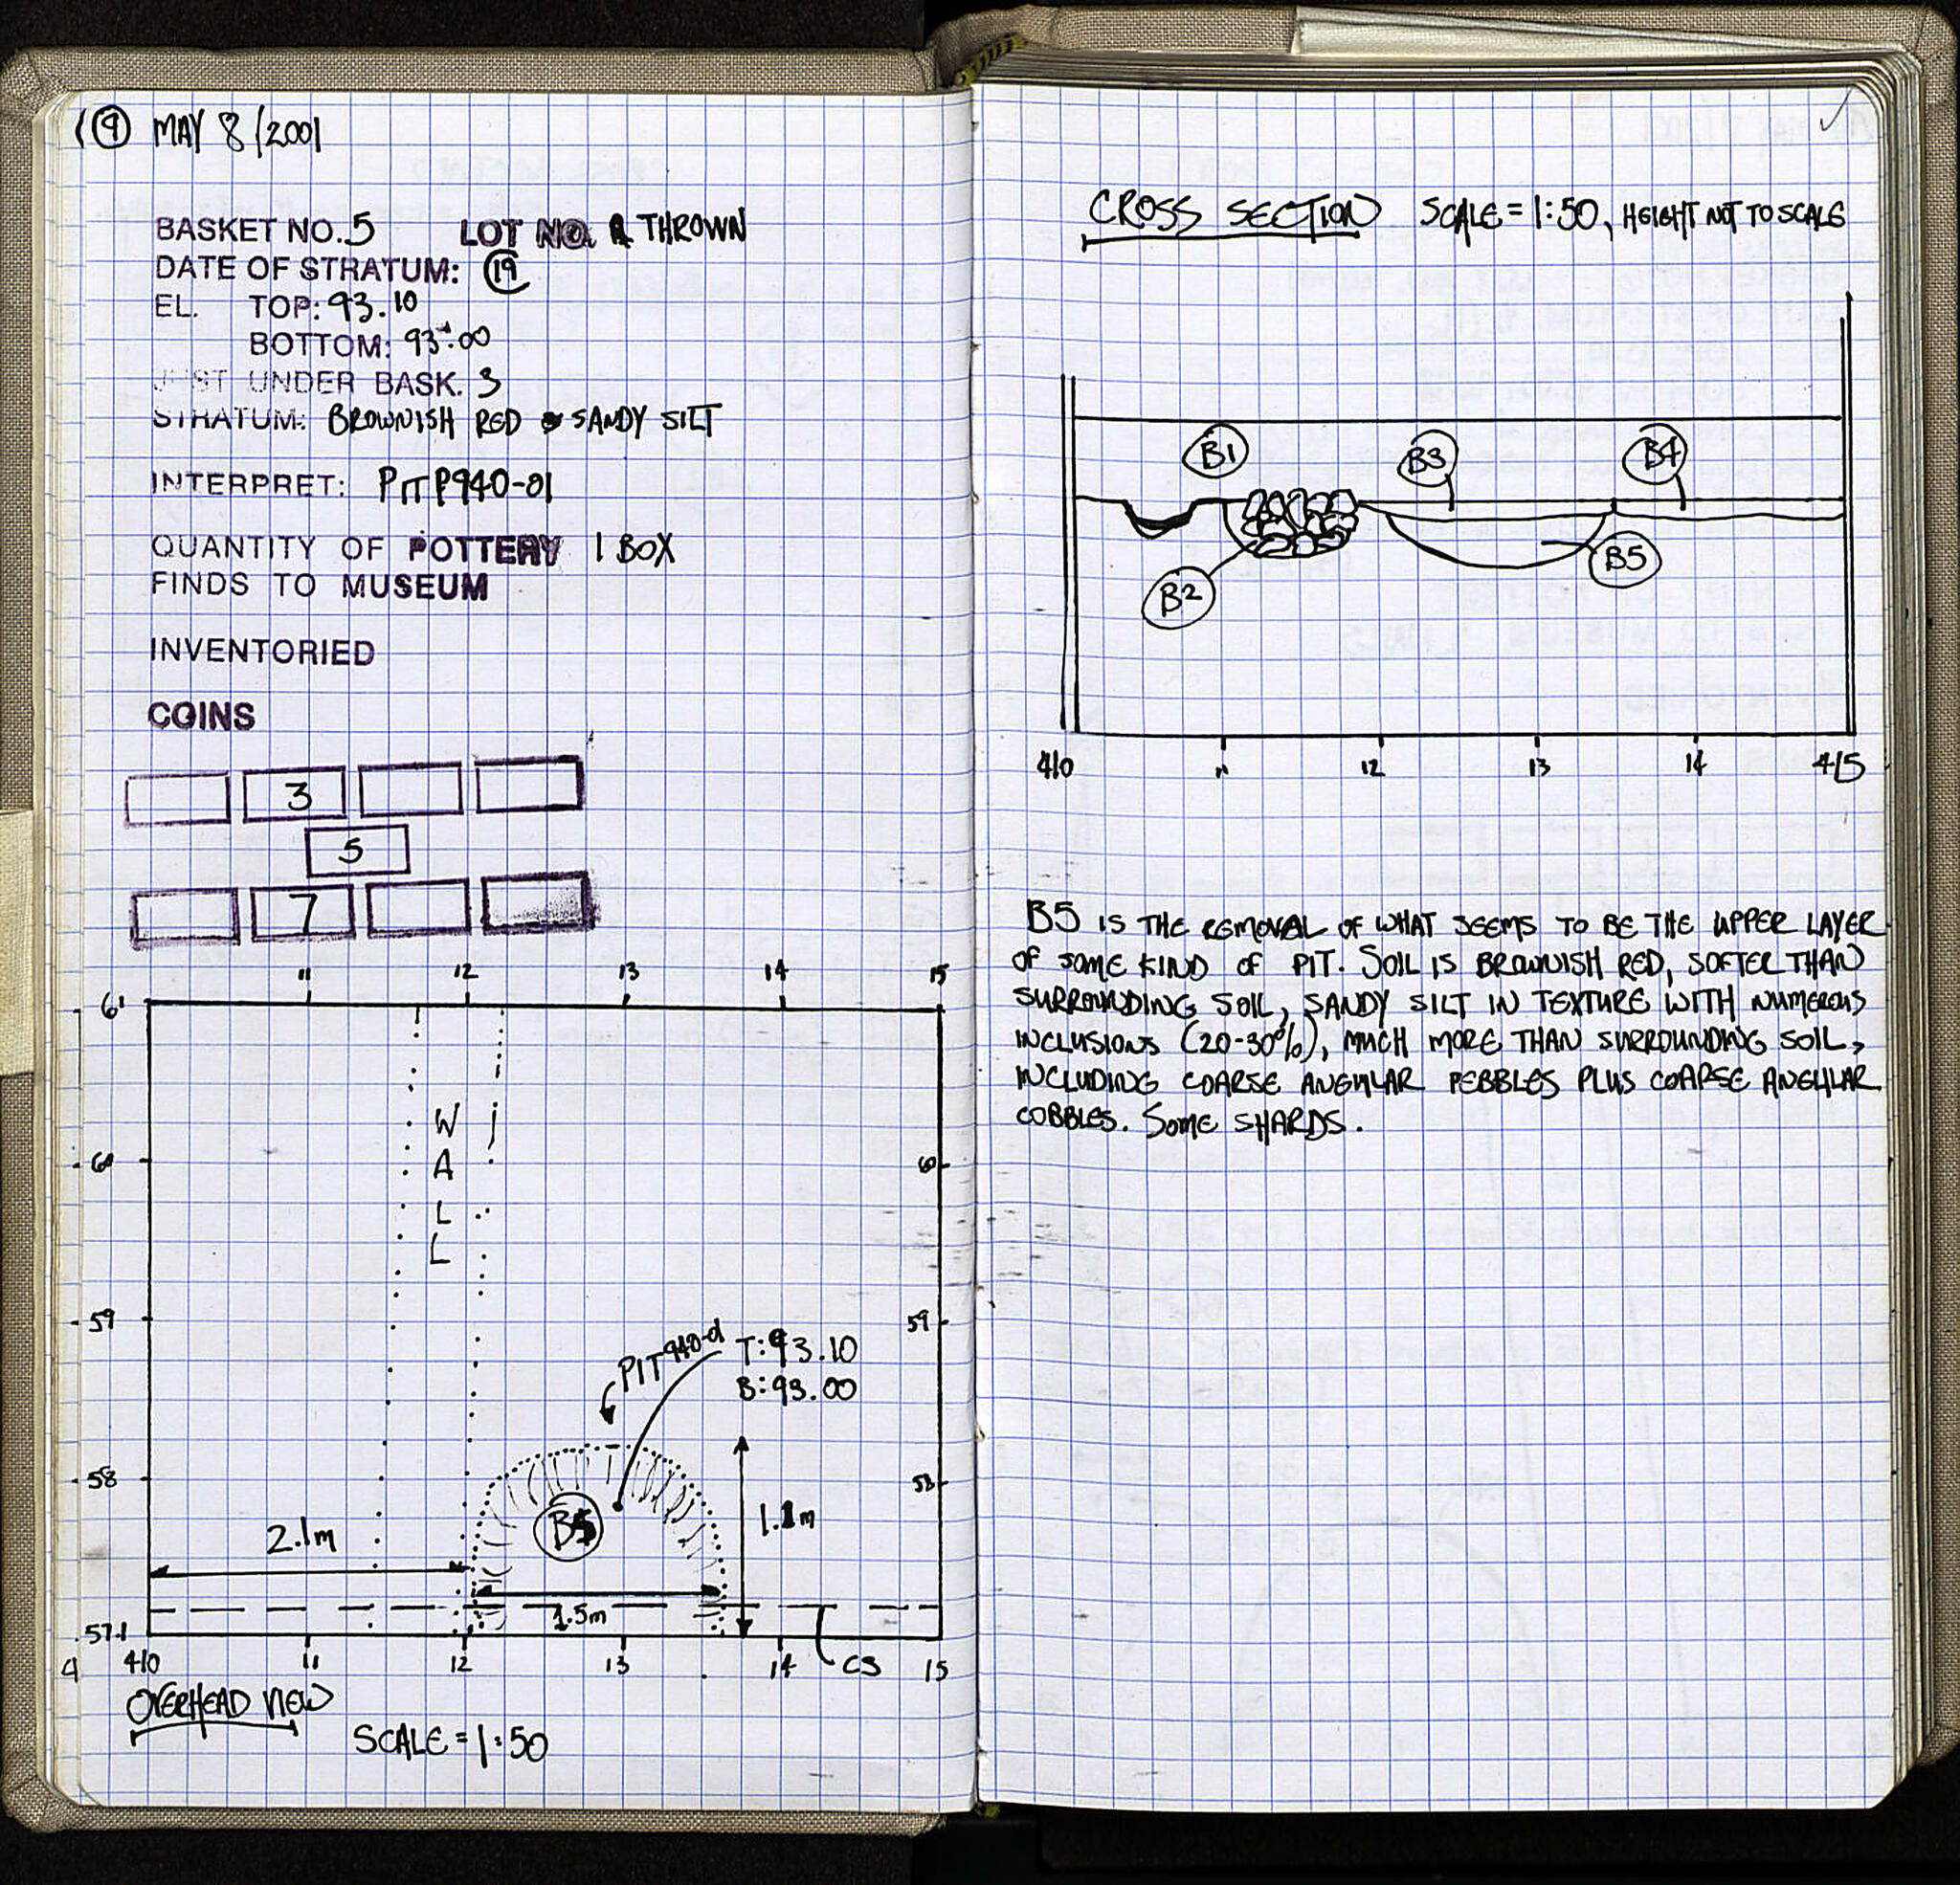 (9) MAY 8/2001
BASKET NO. 5 LOT NO. THROWN
DATE OF STRATUM: 19
EL. TOP: 93.10
BOTTOM: 93.00
JUST UNDER BASK. 3
STRATUM: BROWNISH RED SANDY SILT
INTERPRET: PIT P940-01
QUANTITY OF POTTERY 1 BOX
FINDS TO MUSEUM
INVENTORIED
COINS
3
5
7
11 12 13 14 15
61
WALL
60 60
59 59
PIT 940-01 T: 93.10
B: 93.00
58 58
B5
1.1m
2.1m
1.5m
571
410 11 12 13 14 CS 15
OVERHEAD VIEW
SCALE = 1:50
CROSS SECTION SCALE = 1:50, HEIGHT NOT TO SCALE
B1 B3 B4
B5
B2
410 12 13 14 415
B5 IS THE REMOVAL OF WHAT SEEMS TO BE THE UPPER LAYER
OF SOME KIND OF PIT. SOIL IS BROWNISH RED, SOFTER THAN
SURROUNDING SOIL, SANDY SILT IN TEXTURE WITH NUMEROUS
INCLUSIONS (20-30%), MUCH MORE THAN SURROUNDING SOIL,
INCLUDING COARSE ANGULAR PEBBLES PLUS COARSE ANGULAR
COBBLES. SOME SHARDS.